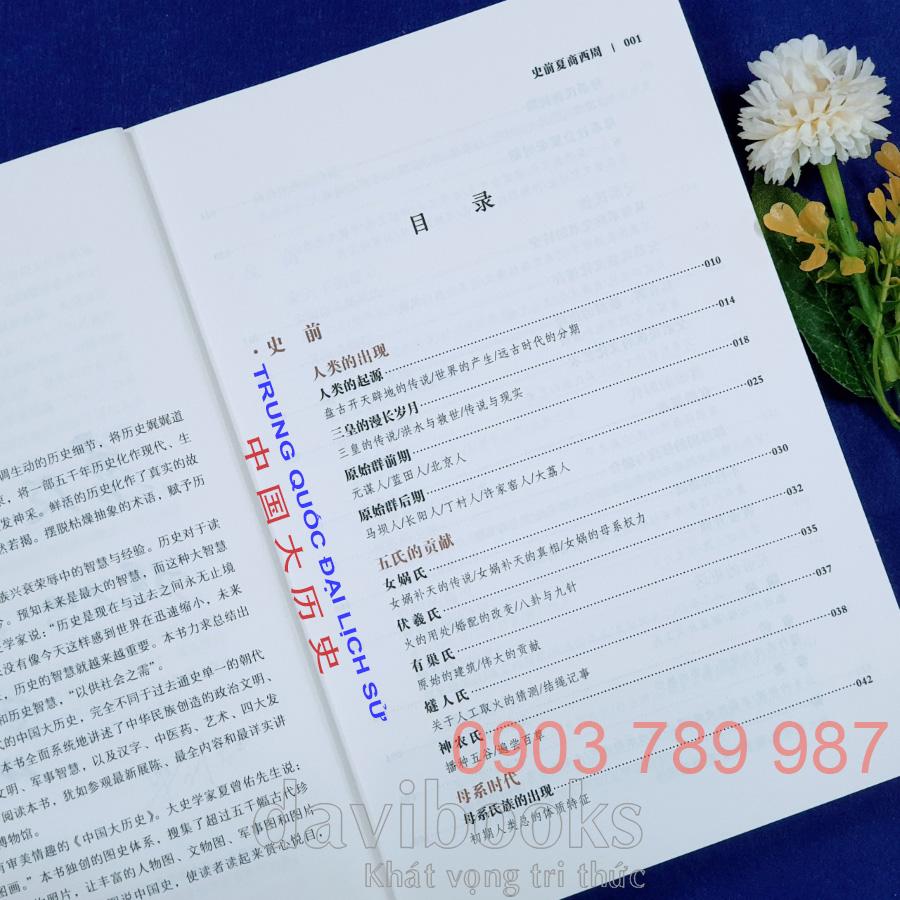 史前夏商西周 | 001
目 录
·史 前
人类的出现
人类的起源 010
盘古开天辟地的传说/世界的产生/远古时代的分期
三皇的漫长岁月 014
三皇的传说/洪水与救世/传说与现实
原始群前期 018
元谋人/蓝田人/北京人
原始群后期 025
马坝人/长阳人/丁村人/许家窑人/大荔人
五氏的贡献
女娲氏 030
女娲补天的传说/女娲补天的真相/女娲的母系权力
伏羲氏 032
火的用处/婚配的改变/八卦与九针
有巢氏 035
原始的建筑/伟大的贡献
燧人氏 037
关于人工取火的猜测/结绳记事
神农氏 038
播种五谷/遍尝百草
母系时代
母系氏族的出现 042
初期人类总的体质特征
TRUNG QUỐC ĐẠI LỊCH SỬ
中国大历史
0903 789 987
davibooks
Khát vọng tri thức
调生动的历史细节，将历史娓娓道
，将一部五千年历史化作现代、生
发神采。鲜活的历史化作了真实的故
然若揭。摆脱枯燥抽象的术语，赋予历
族兴衰荣辱中的智慧与经验。历史对于读
。预知未来是最大的智慧，而这种大智慧
学家说：“历史是现在与过去之间永无止境
没有像今天这样感到世界在迅速缩小，未来
，历史的智慧就越来越重要。本书力求总结出
和历史智慧，“以供社会之需”。
的中国大历史，完全不同于过去通史单一的朝代
本书全面系统地讲述了中华民族创造的政治文明、
文明、军事智慧，以及汉字、中医药、艺术、四大发
阅读本书，犹如参观最新展陈、最全内容和最详实讲
博物馆。
有审美情趣的《中国大历史》。大史学家夏曾佑先生说：
图画。”本书独创的图史体系，搜集了超过五千幅古代珍
的照片，让丰富的人物图、文物图、军事图和图片
说中国史，使读者读起来赏心悦目